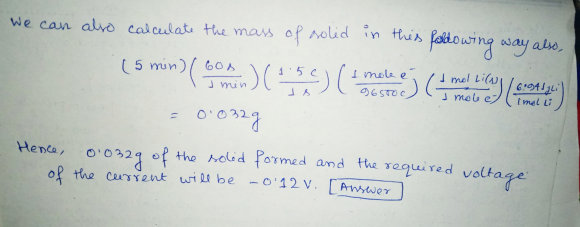 We can also calculate the mass of solid in this following way also,
(5 min) (60 s / 1 min) (1.5 c / 1 s) (1 mole e⁻ / 96500 c) (1 mol Li(s) / 1 mole e⁻) (6.941 g Li / 1 mol Li)
= 0.032g
Hence, 0.032g of the solid formed and the required voltage
of the current will be -0.12 V. [Answer]